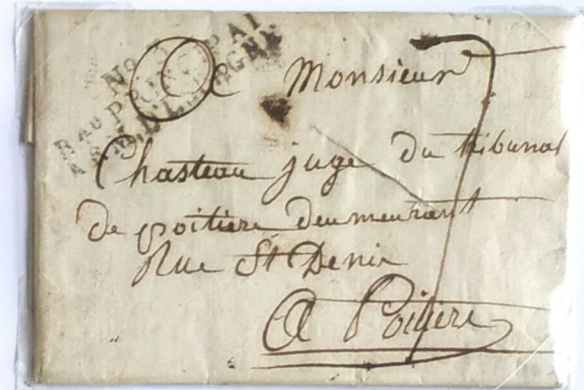 No 11
Bau PRINCIPAL
ARM. D'ALLEMAGNE
A Monsieur
Chasteau juge du tribunal
de poitiers deumeurant
Rue St Denis
A Poitiers
7